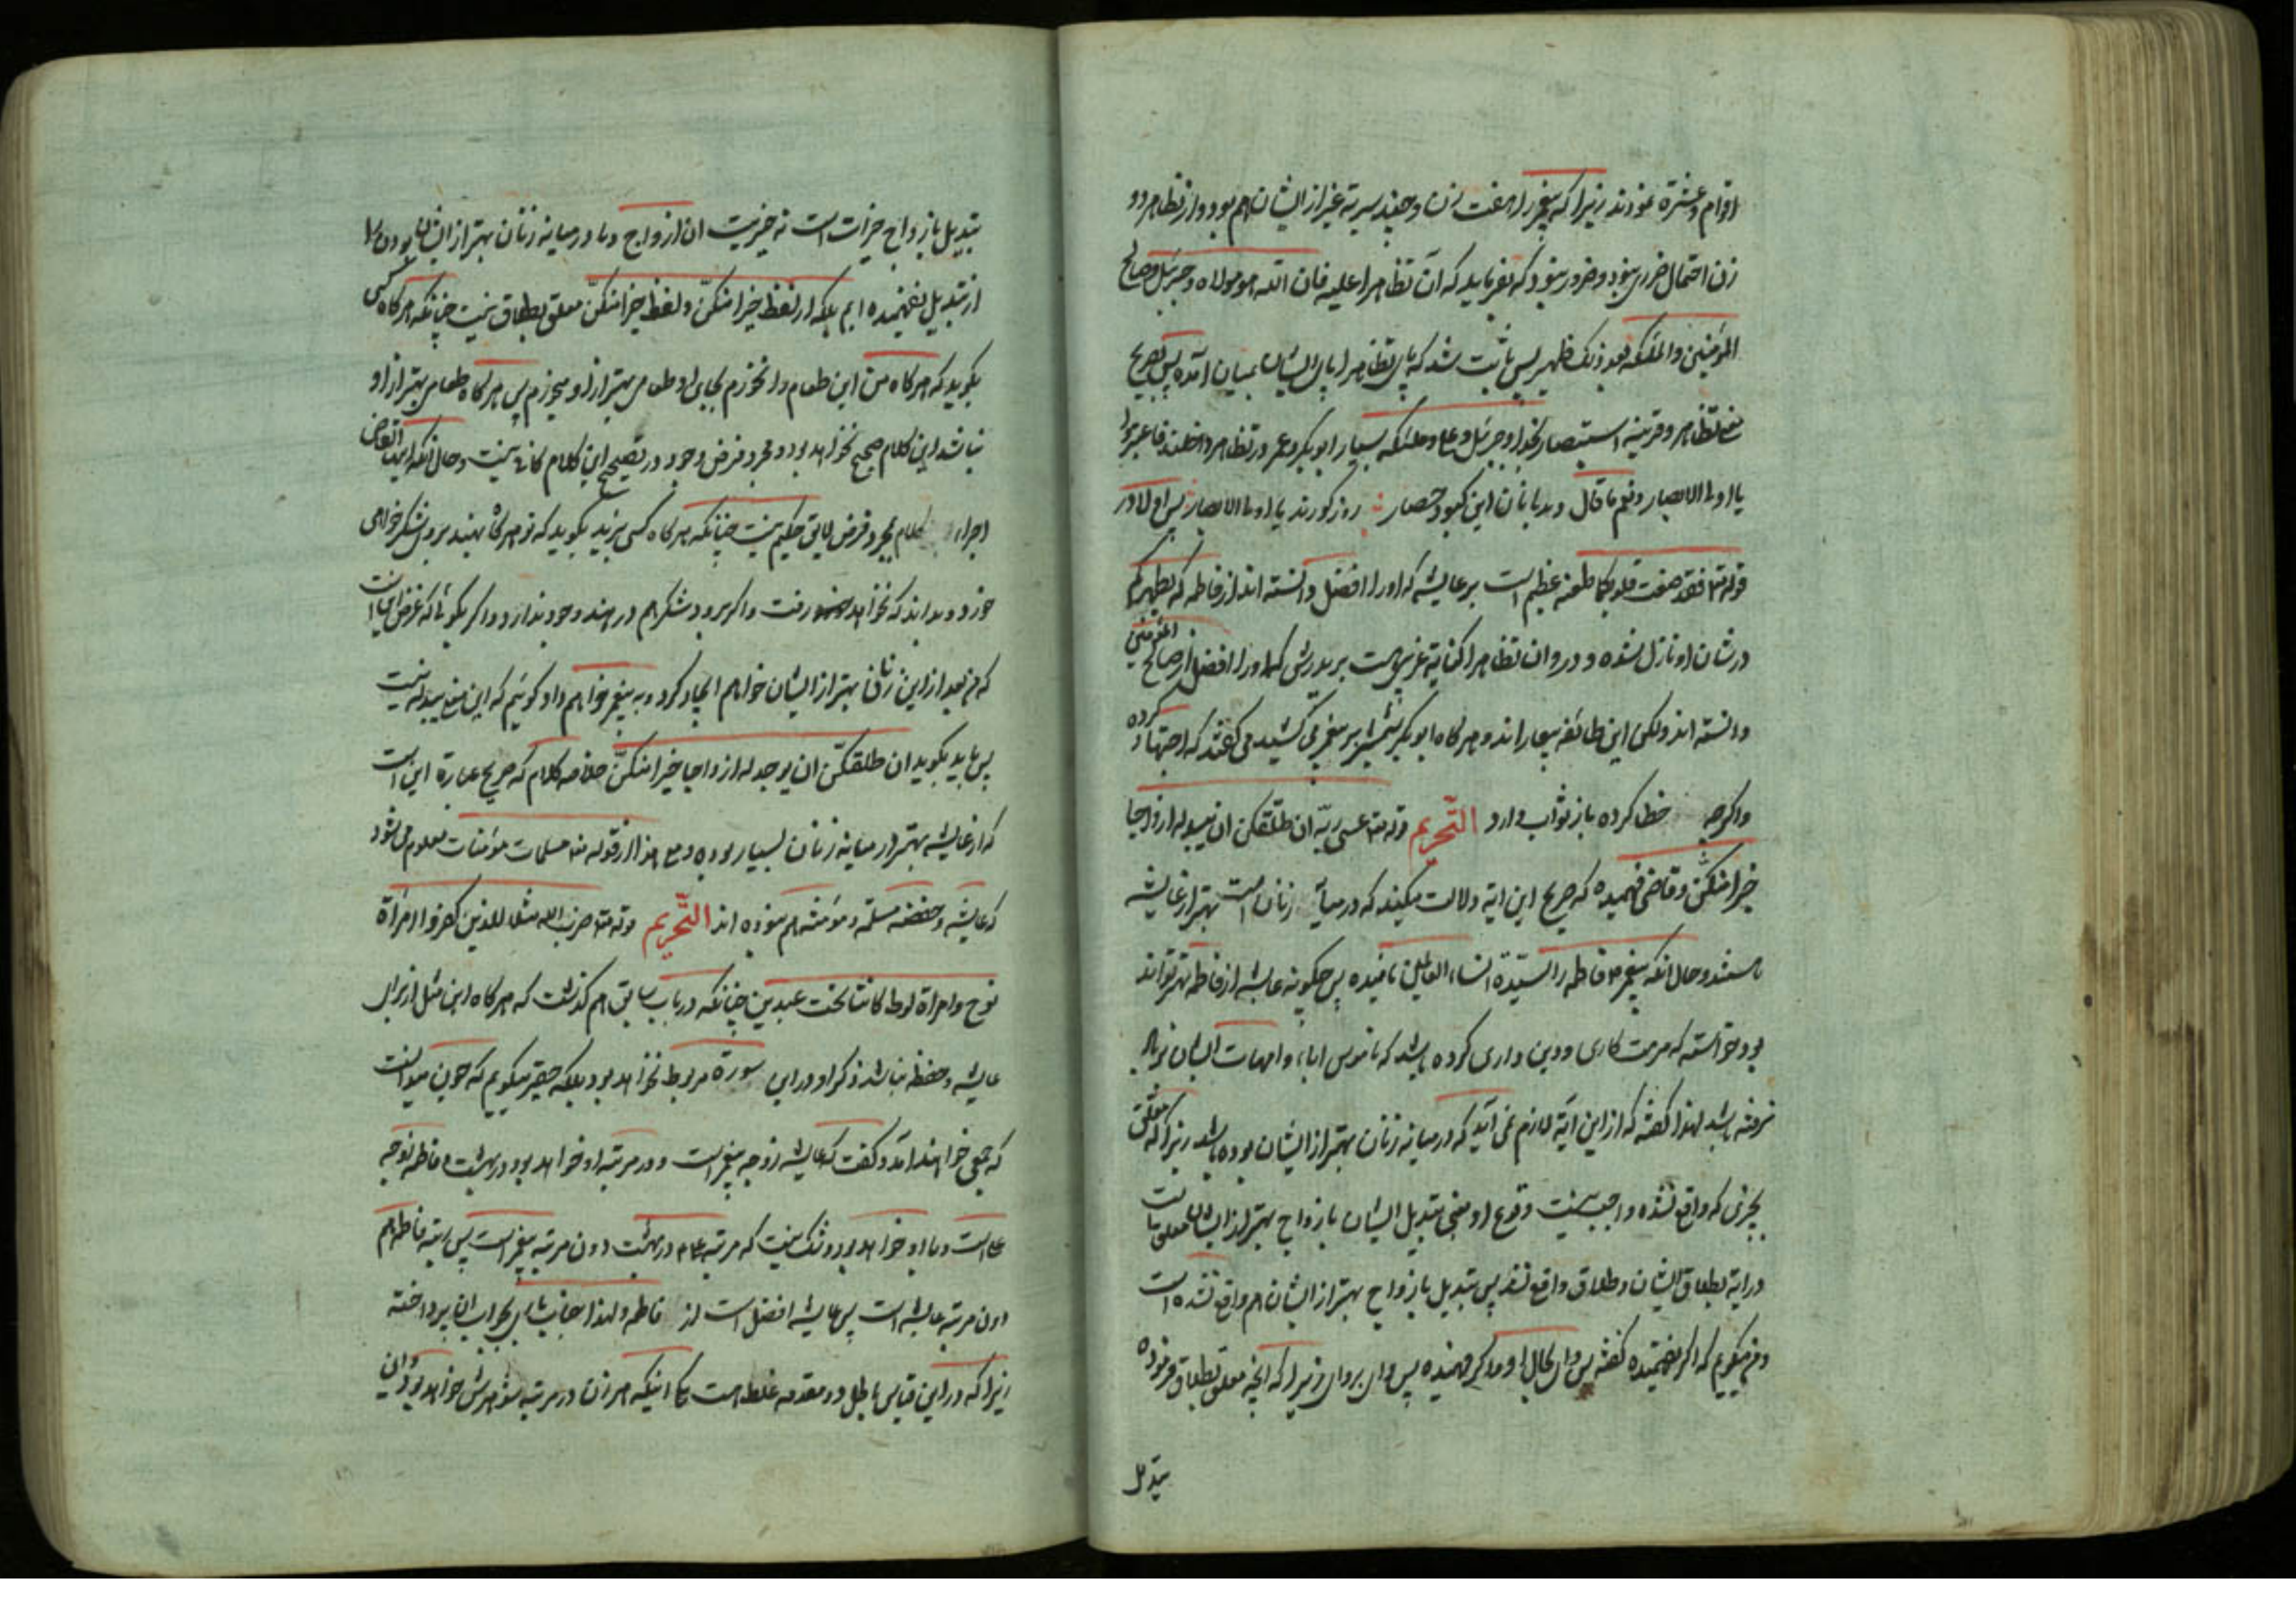 اقوام و عشیرة نمودند زیرا که پیغمبر را هفت زن و چند سریه غیر از ایشان هم بود و از تظاهر دو
زن احتمال ضرری نبود و ضرور نبود که بفرماید که ان تظاهرا علیه فان الله هو مولاه و جبرئیل و صالح
المؤمنین والملئکه بعد ذلک ظهیر پس ثابت شد که پای تظاهر ابای ایشان بمیان آمده پس بصریح
تظاهر و قرینه استنصار بخدا و جبرئیل و علی و ملئکه بسیار ابوبکر و عمر در تظاهر داخلند فاعتبروا
یا اولی الابصار و نعم ما قال روز کورند یا اولی الابصار پس اولا در
قوله تعا فقد صغت قلوبکما طعنه عظیم است بر عایشه که او را افضل دانسته اند از فاطمه که یطهرکم
در شان او نازل شده و در وان تظاهرا کنایة غریبی است بر پدرش که او را افضل از صالح المؤمنین
دانسته اند ولکن این طائفه بیچاراند و هر گاه ابوبکر شمشیر بر پیغمبر می کشید می گفتند که اجتهاد کرده
و اگرچه خطا کرده باز ثواب دارد التحریم قوله تعا عسی ربه ان طلقکن ان یبدله ازواجا
خیرا منکن و قاضی فهمیده که صریح این ایة دلالت میکند که در میانه زنان امت بهتر از عایشه
هستند و حال انکه پیغمبر فاطمه را سیدة النساء العالمین نامیده پس چگونه عایشه از فاطمه بهتر تواند
بود خواسته که مرمت کاری و دین داری کرده باشد که ناموس اباء و امهات ایشان بر باد
نرفته باشد لهذا گفته که از این آیة لازم نمی آید که در میانه زنان بهتر از ایشان بوده باشد زیرا که معلق
بچیزی که واقع نشده واجب نیست وقوع او یعنی تبدیل ایشان بازواج بهتر از ایشان معلق است
در ایة بطلاق ایشان و طلاق واقع نشد پس تبدیل بازواج بهتر از ایشان هم واقع نشده است
و من میگویم که اگر نفهمیده گفته پس وای بحال او و اگر فهمیده پس وای بر وای زیرا که انچه معلق بطلاق فرموده
تبدیل
تبدیل بازواج خیرات است نه خیریت ان ازواج و ما در میانه زنان بهتر از ایشان بودن را
از تبدیل نفهمیده ایم بلکه از لفظ خیرا منکن و لفظ خیرا منکن معلق بطلاق نیست چنانکه هر گاه کسی
بگوید که هر گاه من این طعام را نخوردم بجای او طعامی بهتر از او میخورم پس هر گاه طعامی بهتر از او
نباشد این کلام صحیح نخواهد بود و مجرد فرض وجود در تصحیح این کلام کافی نیست و حال انکه
اجراء کلام بمجرد فرض لایق حکیم نیست چنانکه هر گاه کسی بزید بگوید که تو هر گاه بهند بروی شکر خواهی
خورد و بداند که نخواهد رفت و اگر برود شکر هم در هند وجود ندارد و اگر بگوئی که غرض این است
که من بعد از این زنان بهتر از ایشان خواهم ایجاد کرد و به پیغمبر خواهم داد گوئیم که این معنی یبدله نیست
پس باید بگوید ان طلقکن ان یوجد له ازواجا خیرا منکن خلاصه کلام که صریح عبارة این است
که از عایشه بهتر در میانه زنان بسیار بوده و مع هذا از قوله تعا مسلمات مؤمنات معلوم می شود
که عایشه و حفصه مسلمه و مؤمنه هم نبوده اند التحریم قوله تعا ضرب الله مثلا للذین کفروا امراة
نوح و امراة لوط کانتا تحت عبدین چنانکه در باب سابق هم گذشت که هر گاه این مثل از برای
عایشه و حفصه نباشد ذکر او در این سورة مربوط نخواهد بود بلکه حقیر میگویم که چون میدانست
که جمعی خواهند آمد و گفت که عایشه زوجه پیغمبر است و در مرتبه او خواهد بود در بهشت و فاطمه زوجه
علی است و با او خواهد بود و شک نیست که مرتبه علی در بهشت دون مرتبه پیغمبر است پس رتبه فاطمه هم
دون مرتبه عایشه است پس عایشه افضل است از فاطمه و لهذا جناب باری بجواب ایشان پرداخته
زیرا که در این قیاس باطل دو مقدمه غلط است یکی اینکه هر زن در مرتبه شوهرش خواهد بود و این